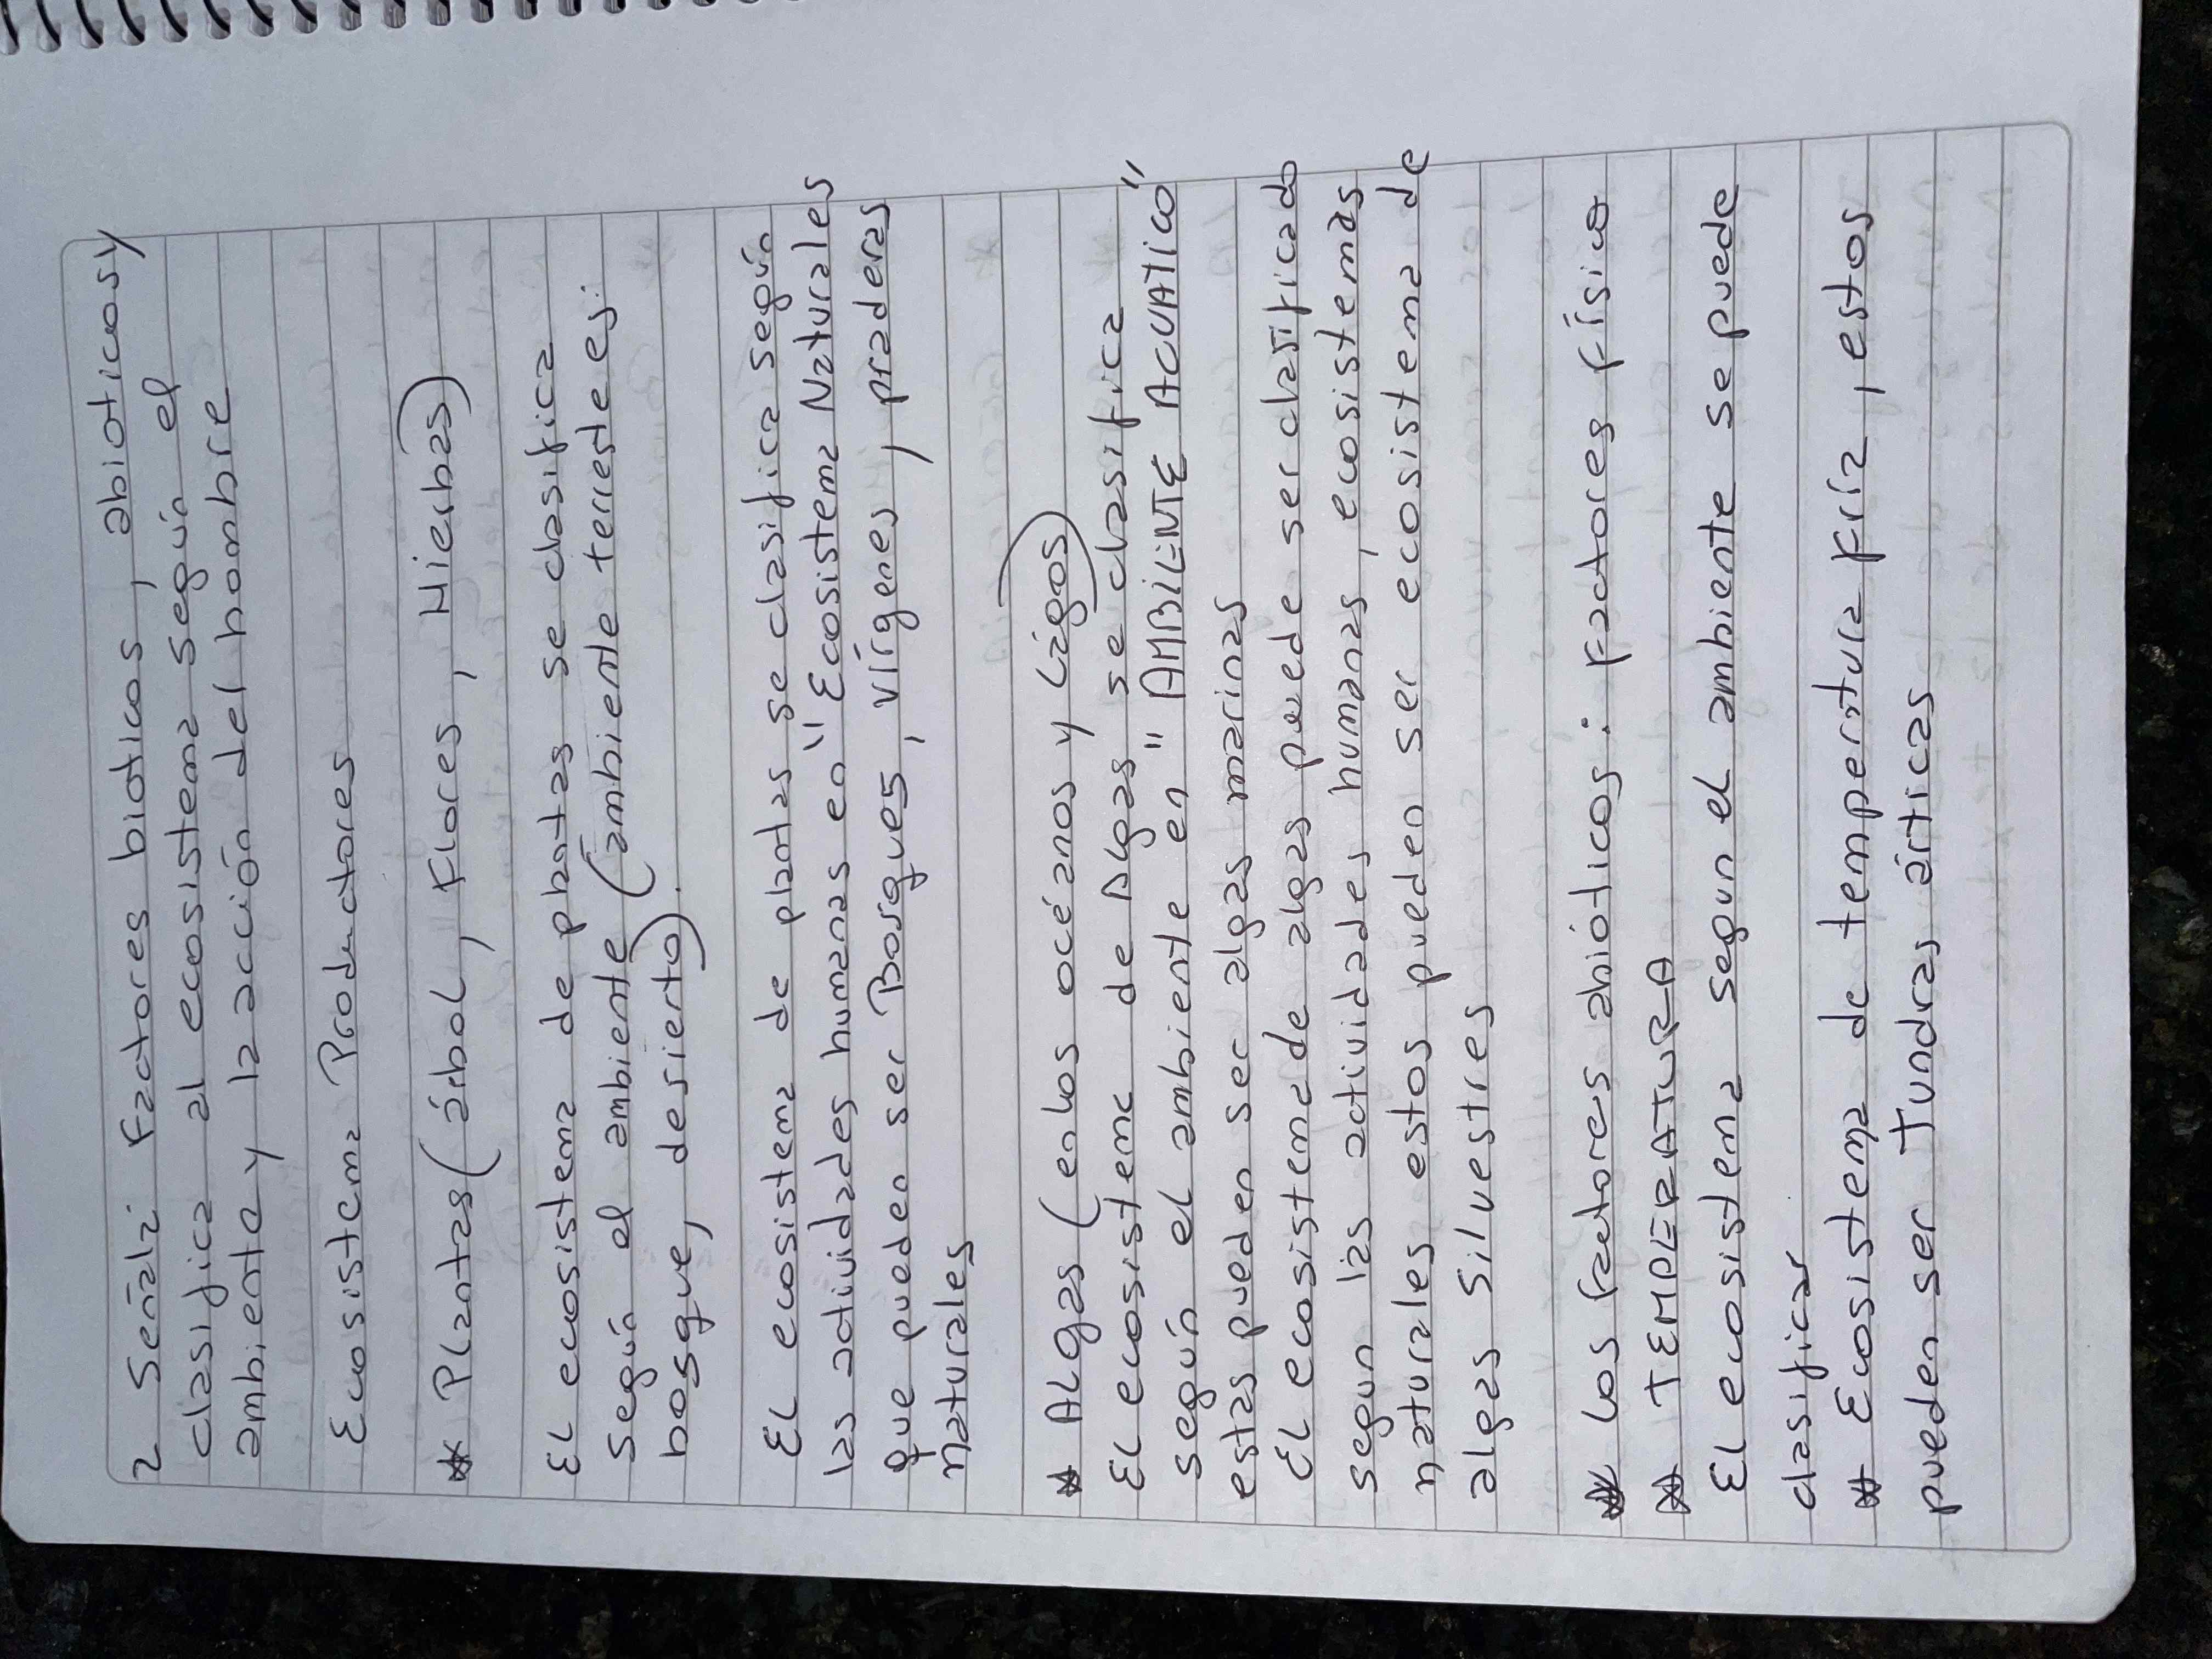 2 Señala Factores bioticos, abioticos y
clasifica al ecosistema según el
ambiente y la acción del hombre
Ecosistema Productores
* Plantas (árbol, Flores, Hierbas)
El ecosistema de plantas se clasifica
según el ambiente (ambiente terreste ej:
bosque, desierto).
El ecosistema de plantas se clasifica según
las actividades humanas en "Ecosistema Naturales
que pueden ser Bosques, vírgenes, praderas
naturales
* ALgas (en los océanos y Lagos)
El ecosistema de Algas se clasifica
según el ambiente en "AMBIENTE ACUATICO"
estas pueden ser algas marinas
El ecosistema de algas puede ser clasificado
segun las actividades humanas, ecosistemas
naturales estos pueden ser ecosistema de
algas Silvestres
* Los factores abióticos: Factores físico
* TEMPERATURA
El ecosistema segun el ambiente se puede
clasificar
* Ecosistema de temperatura fría, estos
pueden ser Tundras árticas